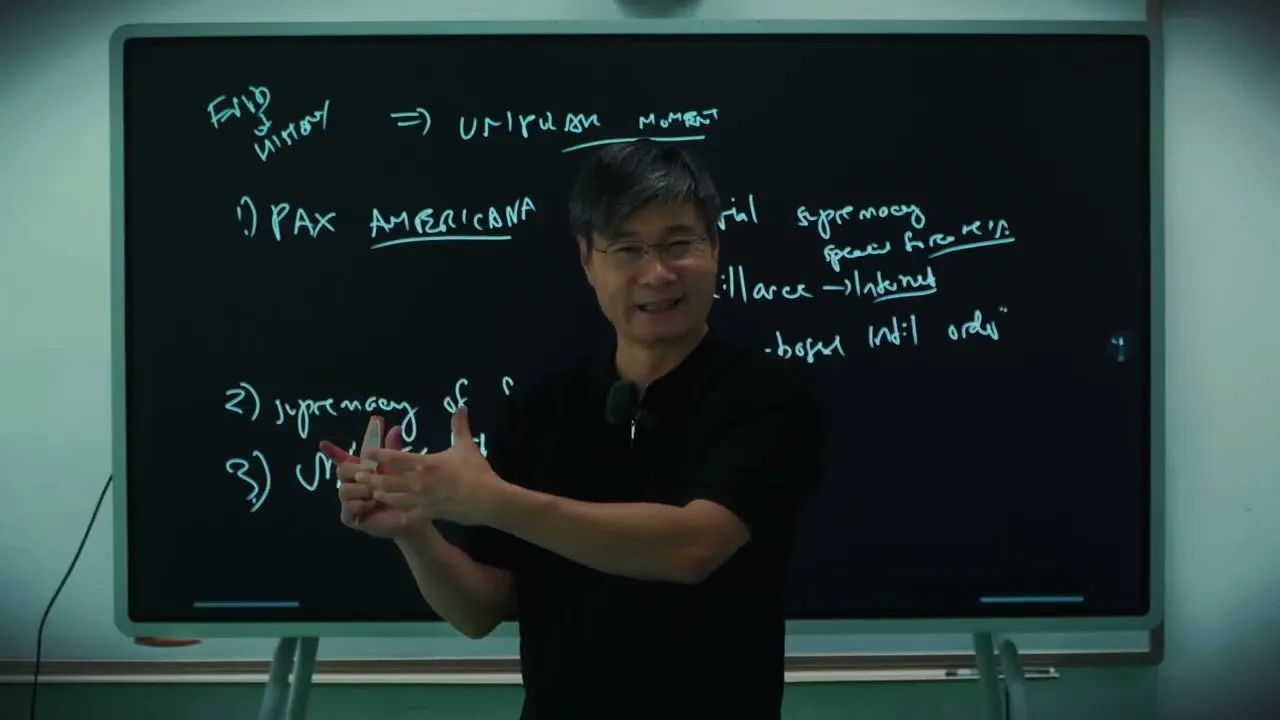 END
of
HISTORY
=> UNIPOLAR MOMENT
1) PAX AMERICANA
supremacy
special forces
→ Internet
-based int'l order"
2) supremacy of
3)